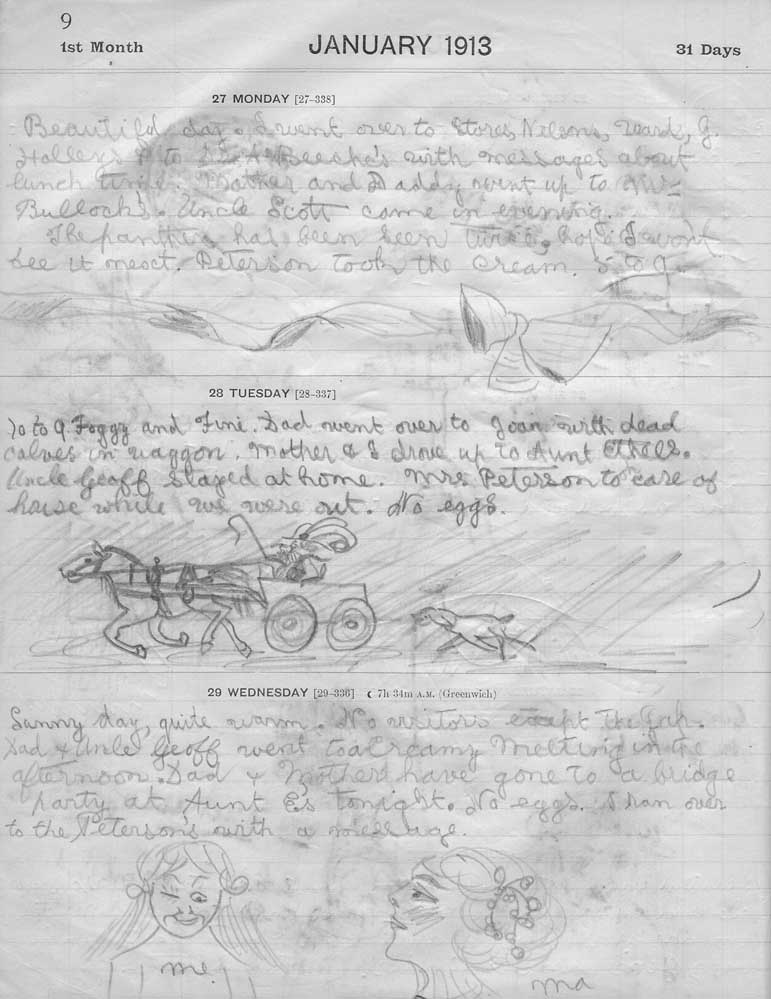 9
1st Month
JANUARY 1913
31 Days
27 MONDAY [27-338]
Beautiful day. I went over to Stores, Nelsons, Ward, G.
Halley's & to Beeche's with messages about
lunch time. Mother and Daddy went up to Mrs
Bullock's. Uncle Scott came in evening.
The panther has been seen twice, hope I wont
see it next. Peterson took the cream. 5 to 9.
28 TUESDAY [28-337]
10 to 9 Foggy and Fine. Dad went over to Joan with dead
calves in waggon. Mother & I drove up to Aunt Ethels.
Uncle Geoff stayed at home. Mrs Peterson to care of
house while we were out. No eggs.
29 WEDNESDAY [29-336] ☾ 7h 34m A.M. (Greenwich)
Sunny day, quite warm. No visitors except the Jap.
Dad & Uncle Geoff went to a Creamy Meeting in the
afternoon. Dad & Mother have gone to a bridge
party at Aunt E's tonight. No eggs. I ran over
to the Peterson's with a message.
me.
ma